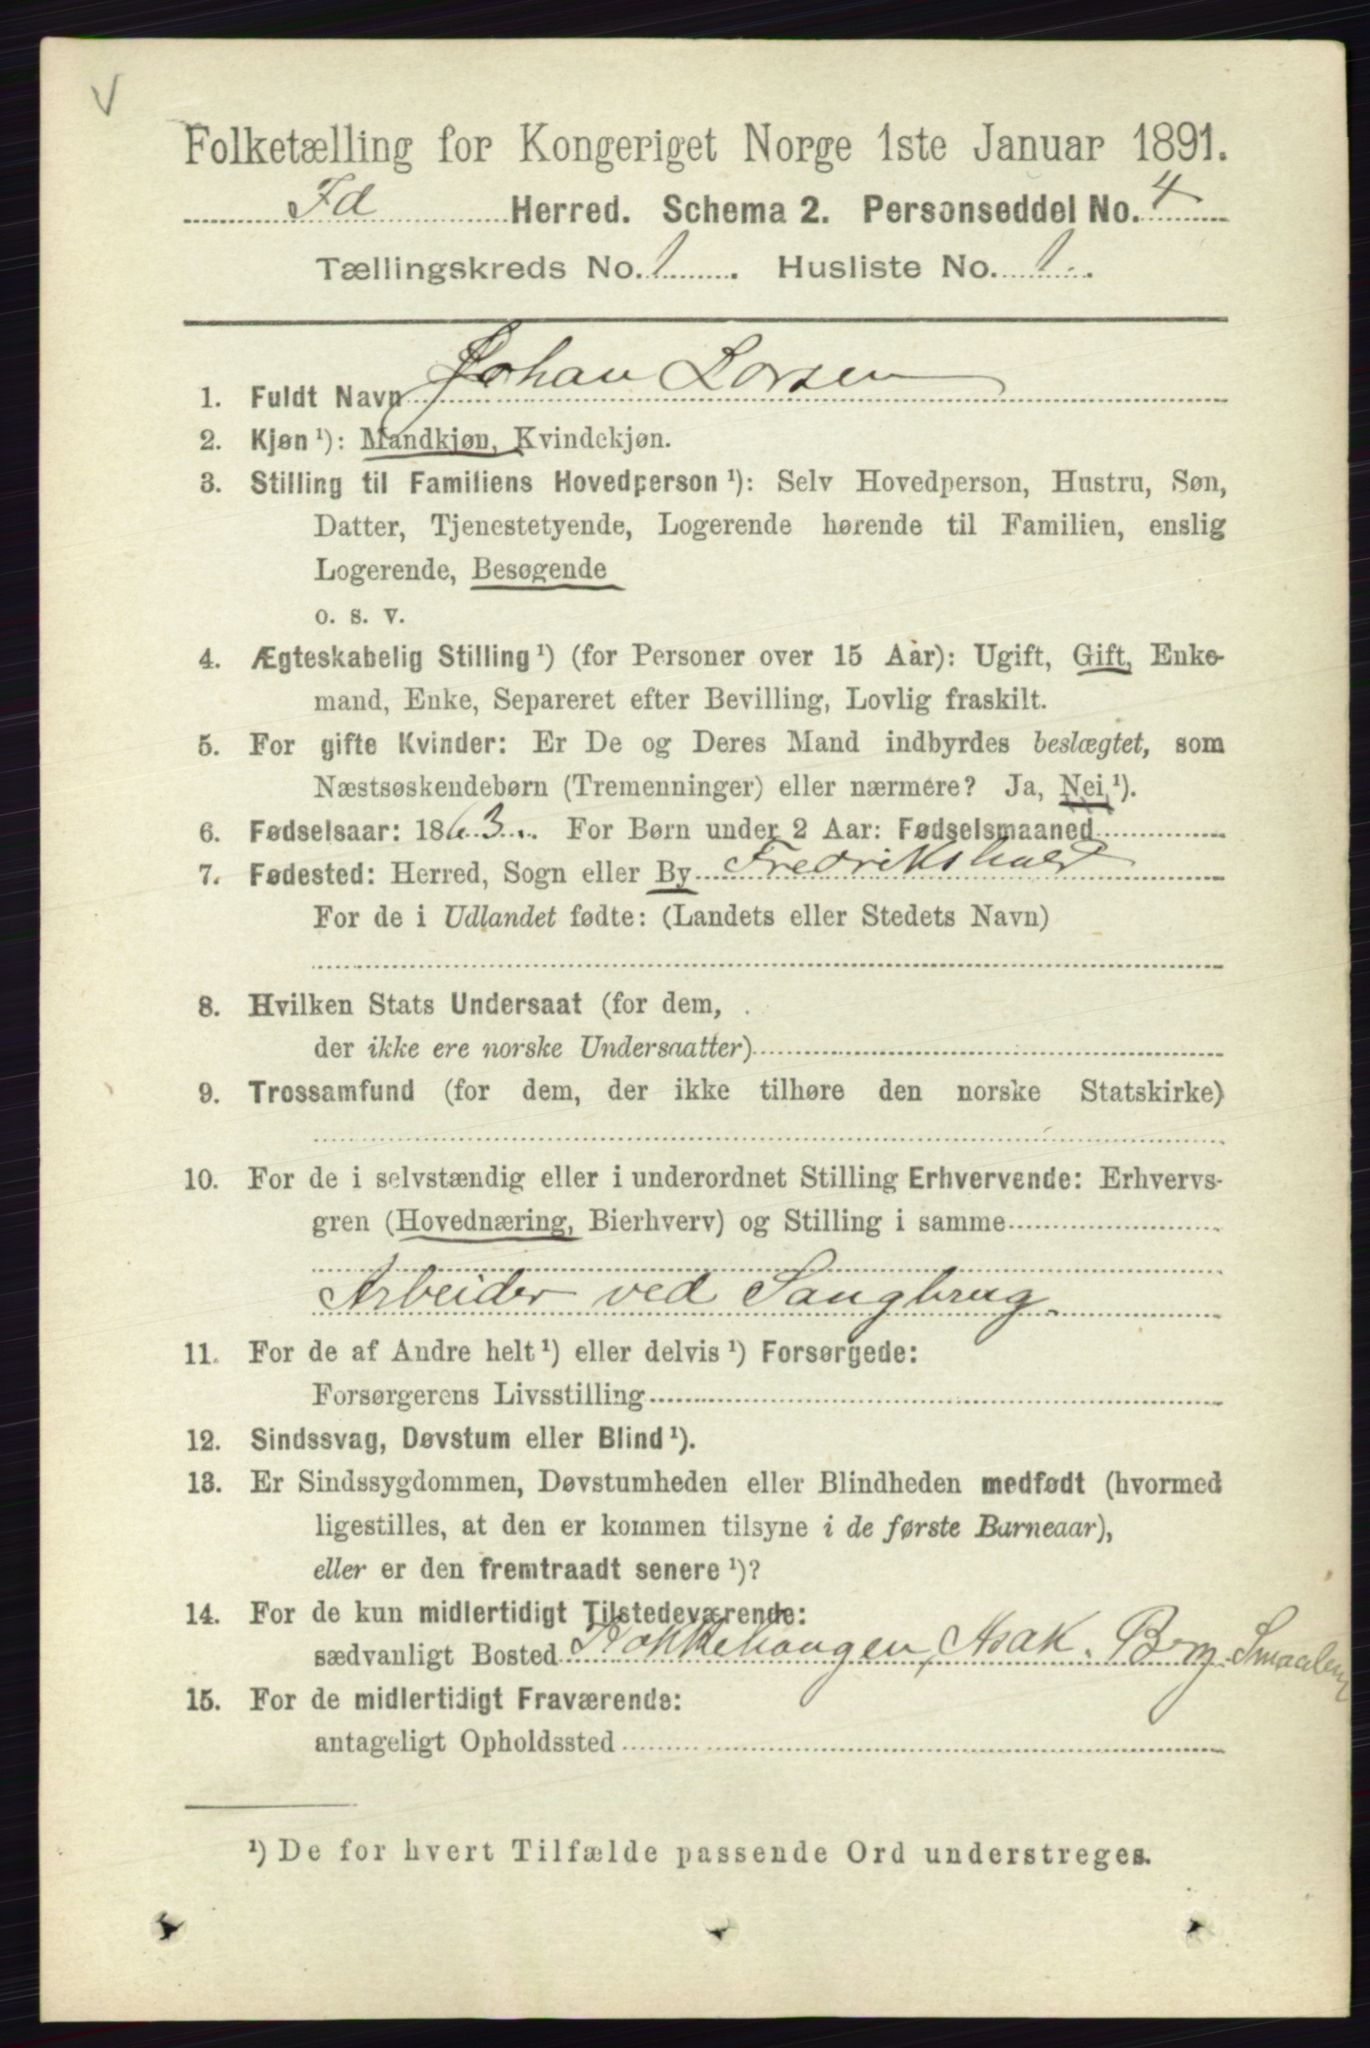 V
Folketælling for Kongeriget Norge 1ste Januar 1891.
Id Herred. Schema 2. Personseddel No. 4
Tællingskreds No. 1. Husliste No. 1.
1. Fuldt Navn Johan Larsen
2. Kjøn ¹): Mandkjøn, Kvindekjøn.
3. Stilling til Familiens Hovedperson ¹): Selv Hovedperson, Hustru, Søn,
Datter, Tjenestetyende, Logerende hørende til Familien, enslig
Logerende, Besøgende
o. s. v.
4. Ægteskabelig Stilling ¹) (for Personer over 15 Aar): Ugift, Gift, Enke-
mand, Enke, Separeret efter Bevilling, Lovlig fraskilt.
5. For gifte Kvinder: Er De og Deres Mand indbyrdes beslægtet, som
Næstsøskendebørn (Tremenninger) eller nærmere? Ja, Nei ¹).
6. Fødselsaar: 1863. For Børn under 2 Aar: Fødselsmaaned
7. Fødested: Herred, Sogn eller By Fredrikshald
For de i Udlandet fødte: (Landets eller Stedets Navn)
8. Hvilken Stats Undersaat (for dem,
der ikke ere norske Undersaatter)
9. Trossamfund (for dem, der ikke tilhøre den norske Statskirke)
10. For de i selvstændig eller i underordnet Stilling Erhvervende: Erhvervs-
gren (Hovednæring, Bierhverv) og Stilling i samme
Arbeider ved Saugbrug.
11. For de af Andre helt ¹) eller delvis ¹) Forsørgede:
Forsørgerens Livsstilling
12. Sindssvag, Døvstum eller Blind ¹).
13. Er Sindssygdommen, Døvstumheden eller Blindheden medfødt (hvormed
ligestilles, at den er kommen tilsyne i de første Barneaar),
eller er den fremtraadt senere ¹)?
14. For de kun midlertidigt Tilstedeværende:
sædvanligt Bosted Asak. Berg. Smaalen
15. For de midlertidigt Fraværende:
antageligt Opholdssted
¹) De for hvert Tilfælde passende Ord understreges.